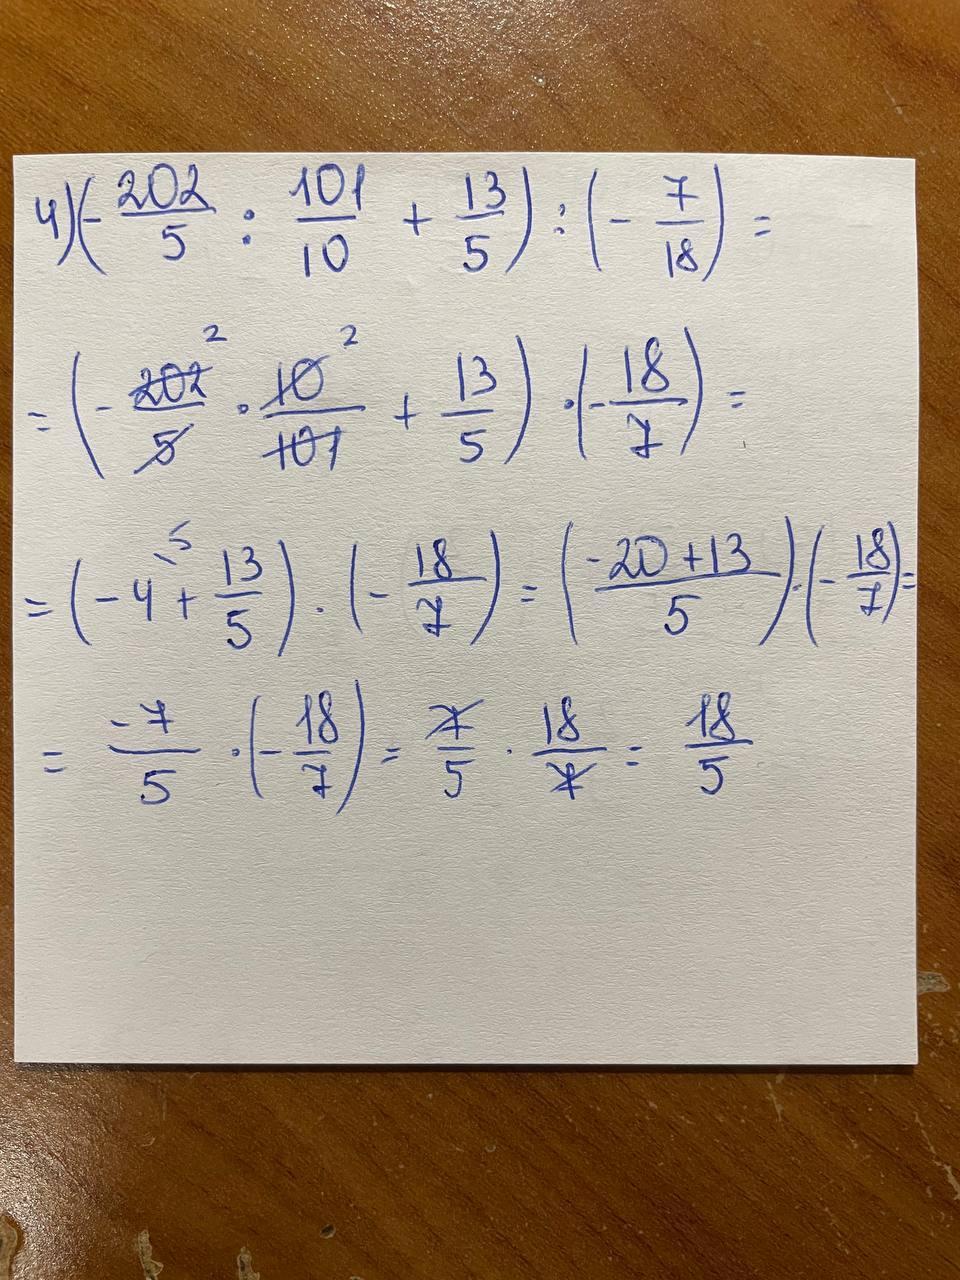 4) (- 202/5 : 101/10 + 13/5) : (- 7/18) =
= (- 202²/5 · 10²/101 + 13/5) · (- 18/7) =
= (- 4⁵ + 13/5) · (- 18/7) = (-20+13/5) · (- 18/7) =
= -7/5 · (- 18/7) = 7/5 · 18/7 = 18/5